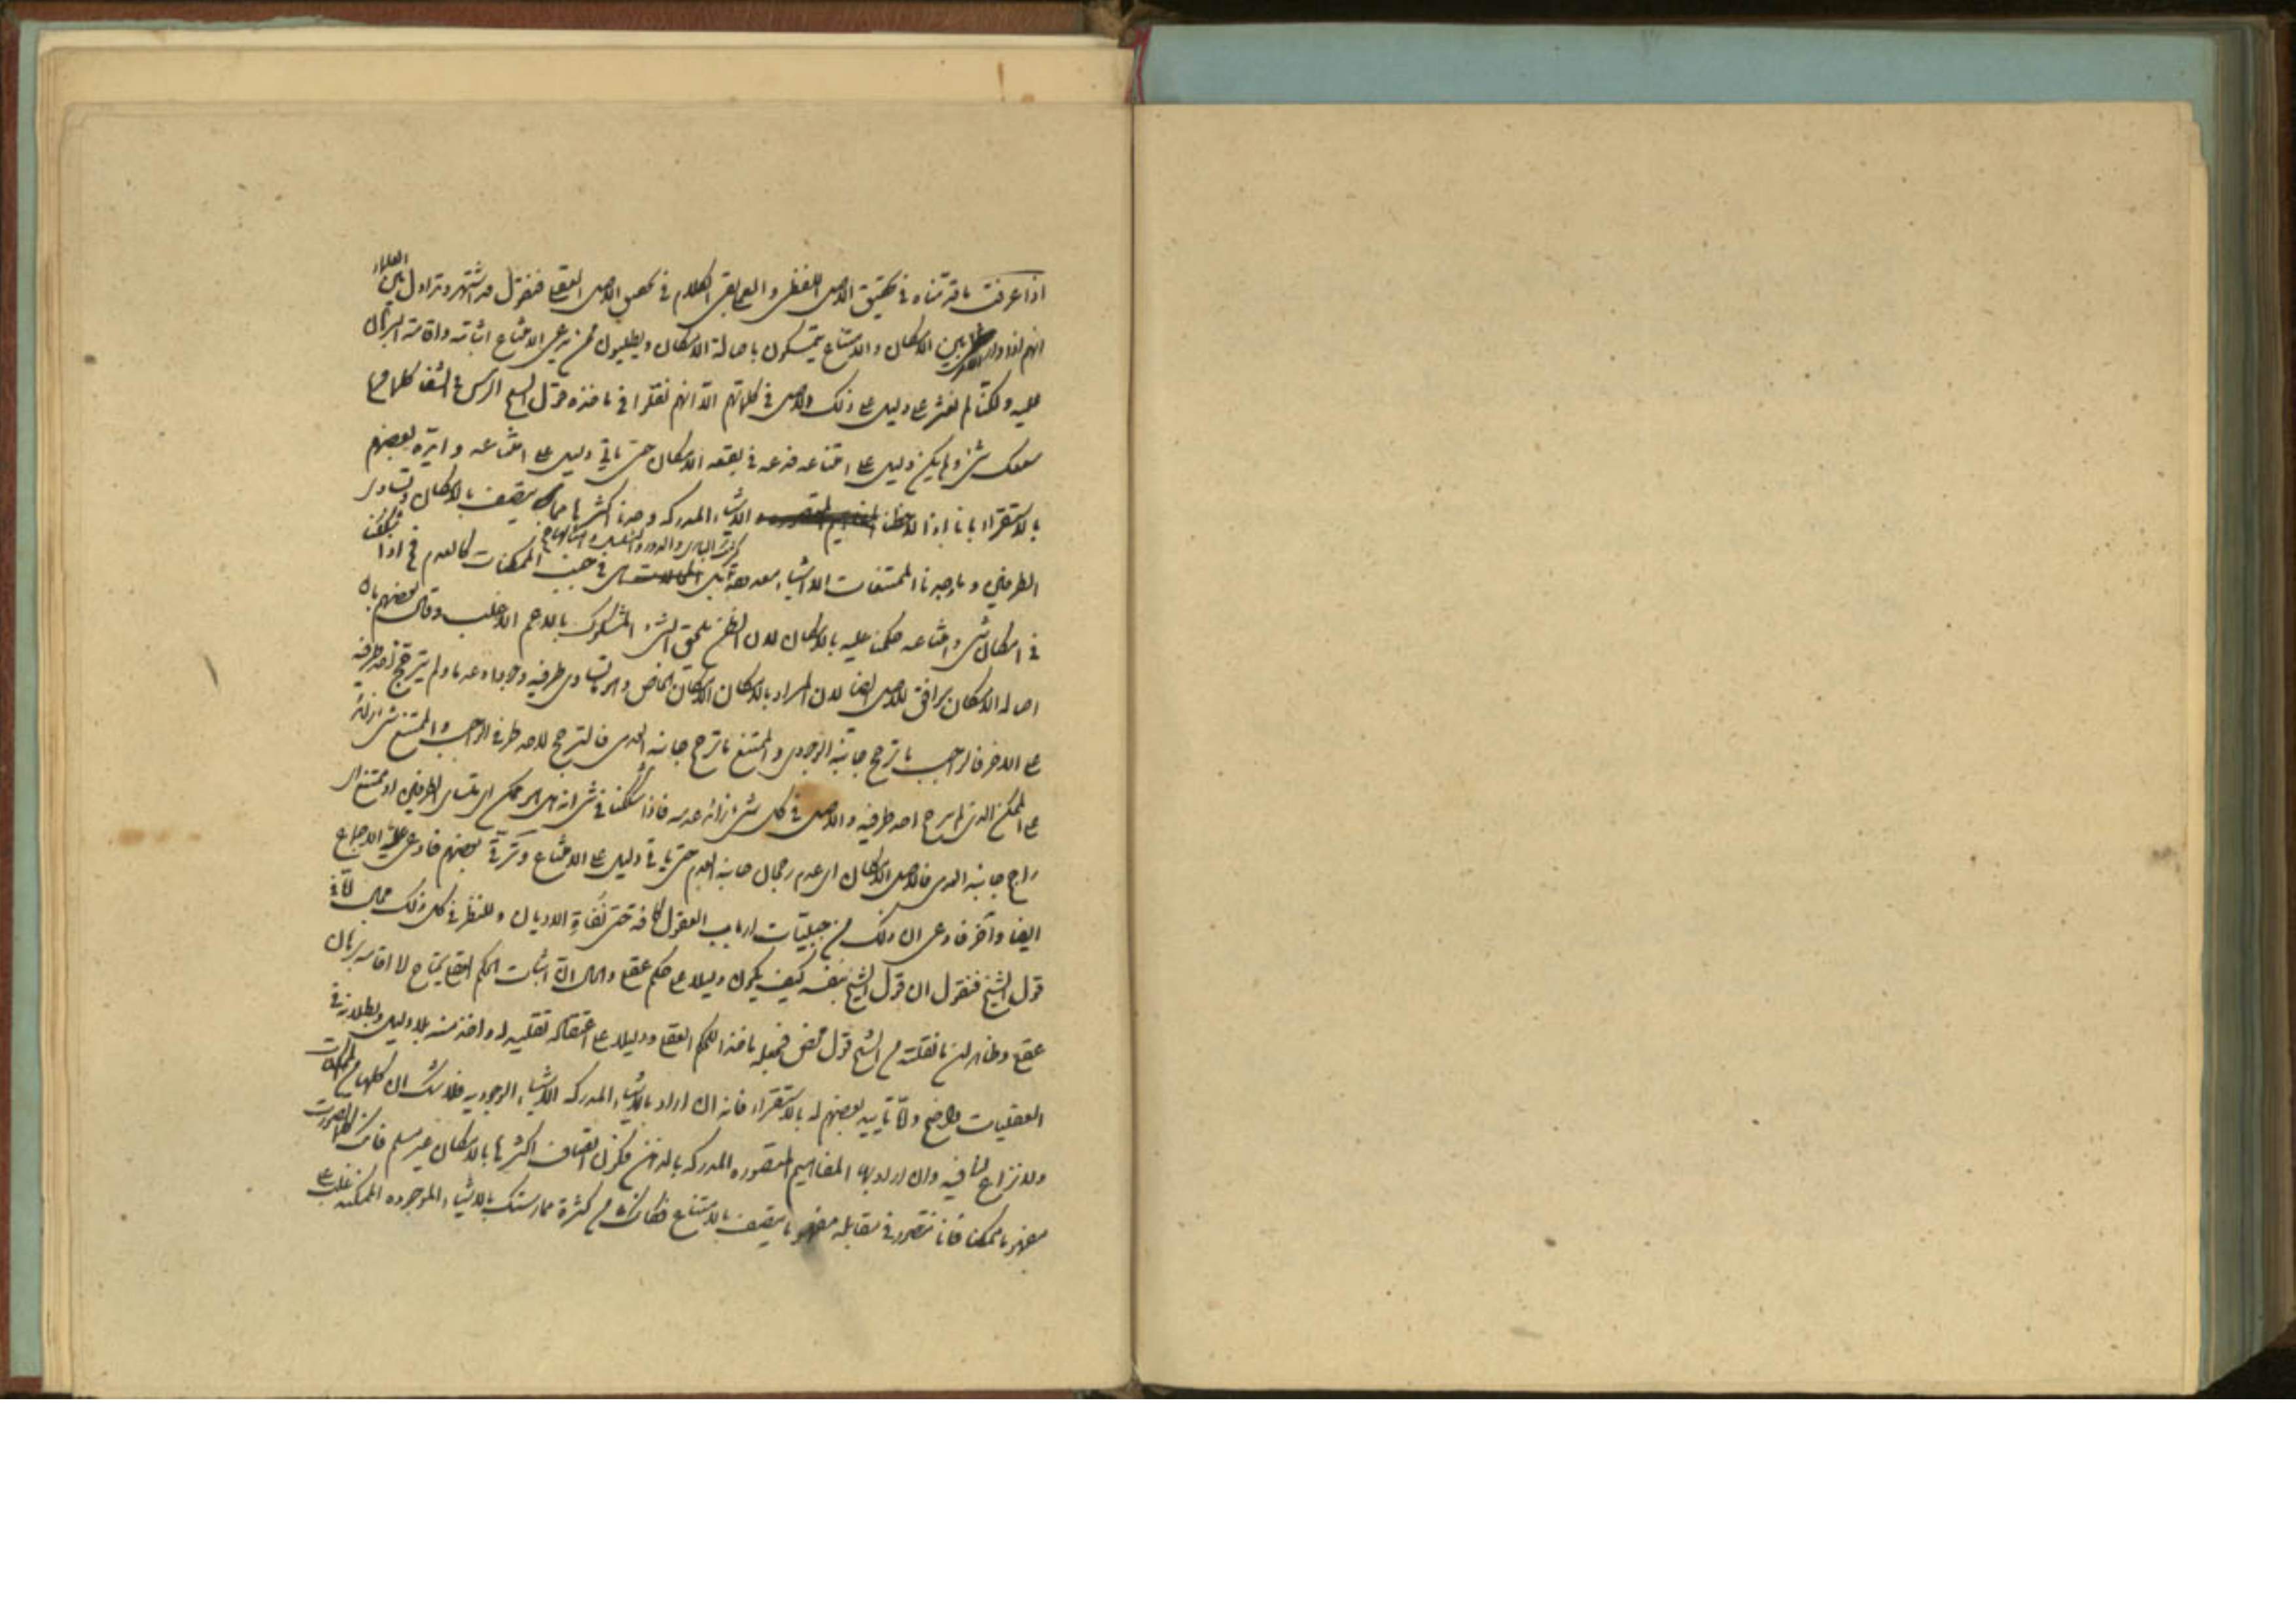 اذا عرفت ما قدمناه فى تحقيق الاصل اللفظى و العملى بقى الكلام فى تحصيل الاصل العقلى فنقول قد اشتهر و تداول بين العلماء
انهم اذا دار الامر بين الامكان و الامتناع يتمسكون باصالة الامكان و يطلبون ممن يدعى الامتناع اثباته و اقامة البرهان
عليه و لكنا لم نعثر على دليل على ذلك الاصل فى كلماتهم الا انهم نقلوا فى ماخذه قول الشيخ الرئيس فى الشفا كلما قرع
سمعك شئ و لم يكن دليل على امتناعه فذره فى بقعة الامكان حتى ياتى دليل على امتناعه و ايده بعضهم
بالاستقراء بانا اذا لاحظنا الاشياء المدركه وجدنا اكثرها مما يتصف بالامكان و تساوى
الطرفين و ما وجدنا الممتنعات الا اشياء معدودة كشريك البارى و الدور و التسلسل و امثالها فهى فى جنب الممكنات كالعدم فاذا شككنا
فى امكان شئ و امتناعه حكمنا عليه بالامكان لان الظن يلحق الشئ المشكوك بالاعم الاغلب و قال بعضهم بان
اصالة الامكان يوافق للاصل ايضا لان المراد بالامكان الامكان الخاص و هو تساوى طرفيه وجودا و عدما و لم يترجح احد طرفيه
على الاخر فالواجب ما ترجح جانبه الوجودى و الممتنع ما ترجح جانبه العدمى فالترجيح لاحد طرفى الواجب و الممتنع شئ زائد
على الممكن الذى لم يترجح احد طرفيه و الاصل فى كل شئ زائد عدمه فاذا شككنا فى شئ انه هل هو ممكن اى متساوى الطرفين او ممتنع اى
راجح جانبه العدمى فالاصل الامكان اى عدم رجحان جانبه العدم حتى ياتى دليل على الامتناع و ترقى بعضهم فادعى عليه الاجماع
ايضا و آخر فادعى ان ذلك من جبليات ارباب العقول كافة حتى نفاة الاديان و للنظر فى كل ذلك مجال اما فى
قول الشيخ فنقول ان قول الشيخ بنفسه كيف يكون دليلا على حكم عقلى و الحال ان اثبات الحكم العقلى يحتاج الى اقامه برهان
عقلى و ظاهر ان ما نقلته من الشيخ قول محض فجعله ماخذا للحكم العقلى و دليلا على اعتقاكه تقليد له و اخذ منه بلا دليل و بطلانه فى
العقليات واضح و اما تاييد بعضهم له بالاستقراء فانه ان اراد بالاشياء المدركه الاشياء الوجوديه فلا شك ان كلها من الممكنات
و لا نزاع لنا فيه و ان اراد بها المفاهيم المتصوره المدركه بالذهن فكون اتصاف اكثرها بالامكان غير مسلم فانك كلما تصورت
مفهوما ممكنا فانا نتصور فى مقابله مفهوما يتصف بالامتناع فكانك من كثرة ممارستك بالاشياء الموجوده الممكنه غلب على